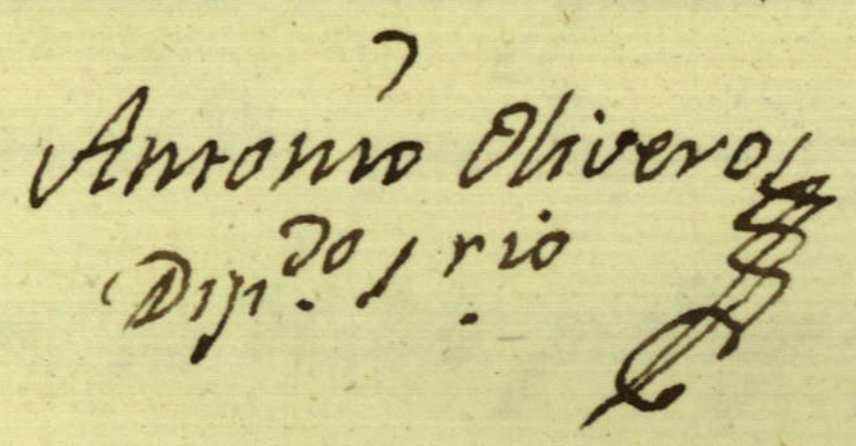 Antonio Olivero
Dip.do S.rio